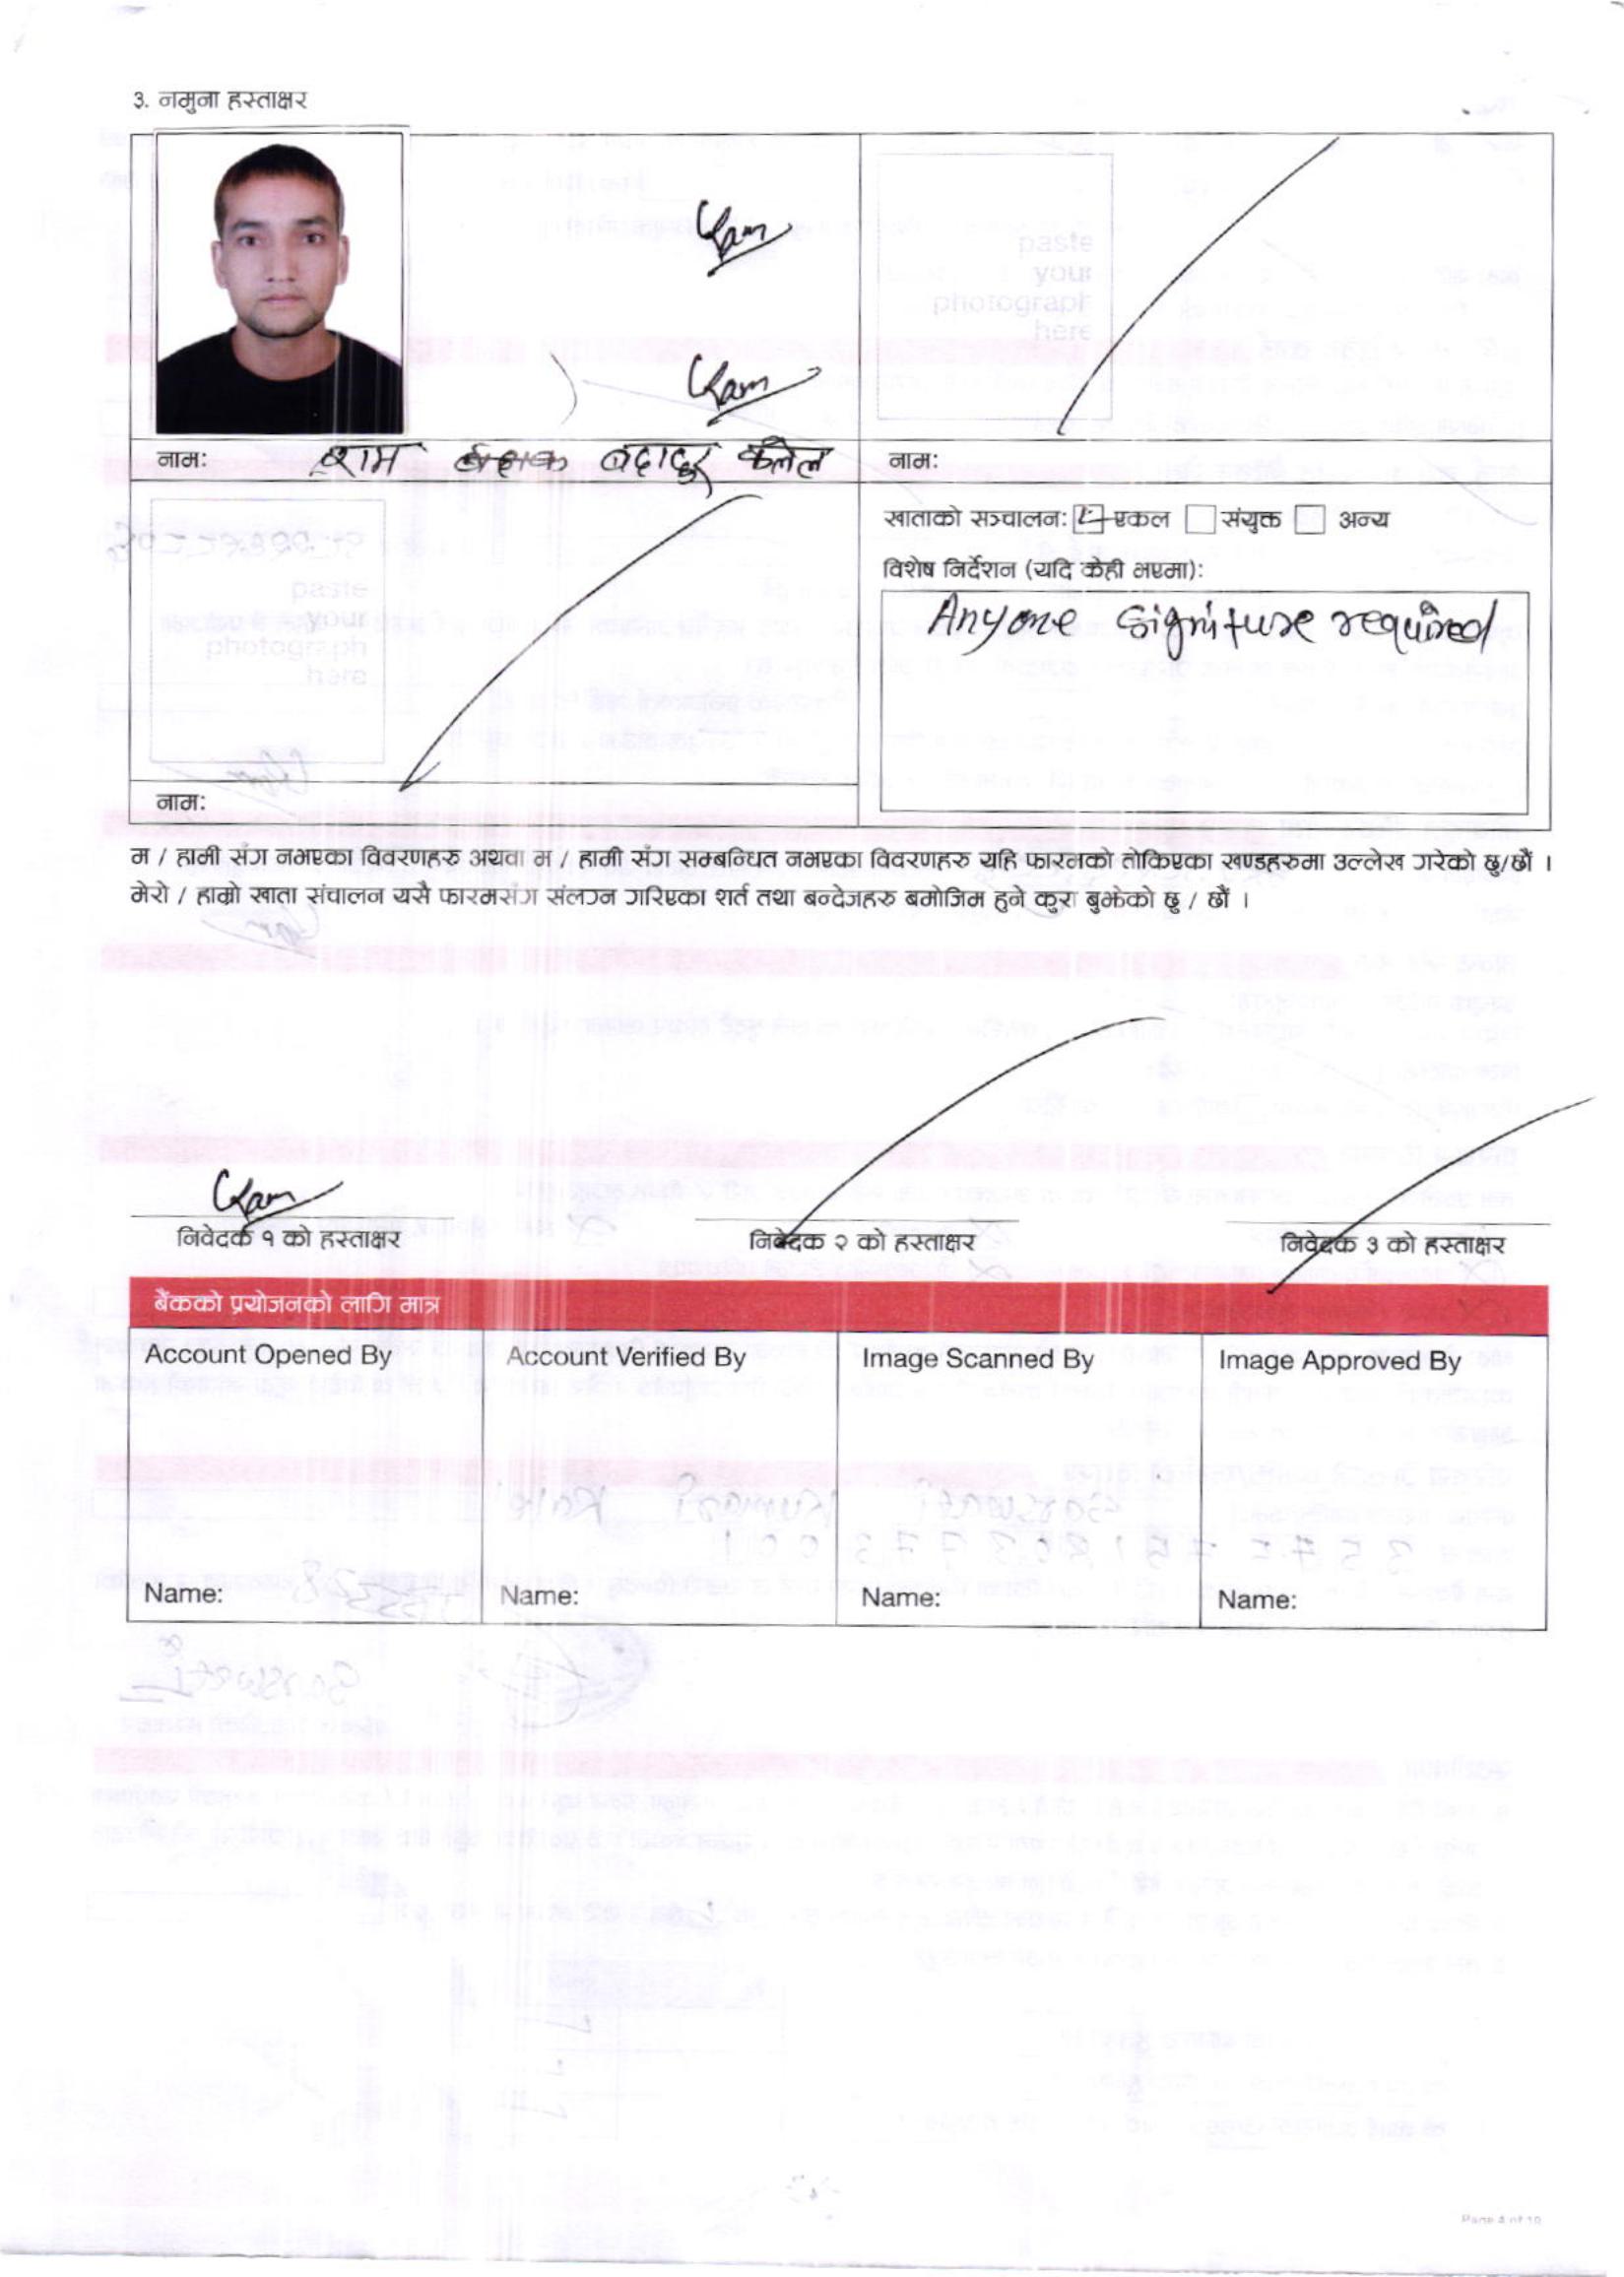 ३. नमुना हस्ताक्षर
paste
your
photograph
here
नाम: श्याम बहादुर
नाम:
paste
your
photograph
here
खाताको सञ्चालन: एकल संयुक्त अन्य
विशेष निर्देशन (यदि केही भएमा):
Anyone signiture required
नाम:
म / हामी सँग नभएका विवरणहरु अथवा म / हामी सँग सम्बन्धित नभएका विवरणहरु यहि फारमको तोकिएका खण्डहरुमा उल्लेख गरेको छु/छौं ।
मेरो / हाम्रो खाता संचालन यसै फारमसँग संलग्न गरिएका शर्त तथा बन्देजहरु बमोजिम हुने कुरा बुझेको छु / छौं ।
निवेदक १ को हस्ताक्षर
निवेदक २ को हस्ताक्षर
निवेदक ३ को हस्ताक्षर
बैंकको प्रयोजनको लागि मात्र
Account Opened By
Account Verified By
Image Scanned By
Image Approved By
Name:
Name:
Name:
Name:
Page 4 of 19